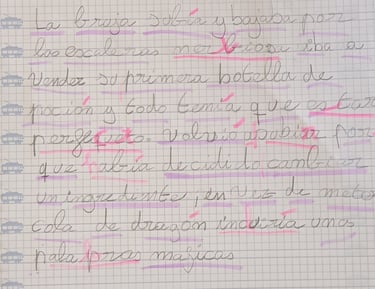 La bruja subía y bajaba por
las escaleras nerbiosa iba a
vender su primera botella de
poción y todo tenía que estar
perfecto. Volvió a subir por
que había decidido cambiar
un ingrediente, en vez de meter
cola de dragón incluiría unas
palabras magicas